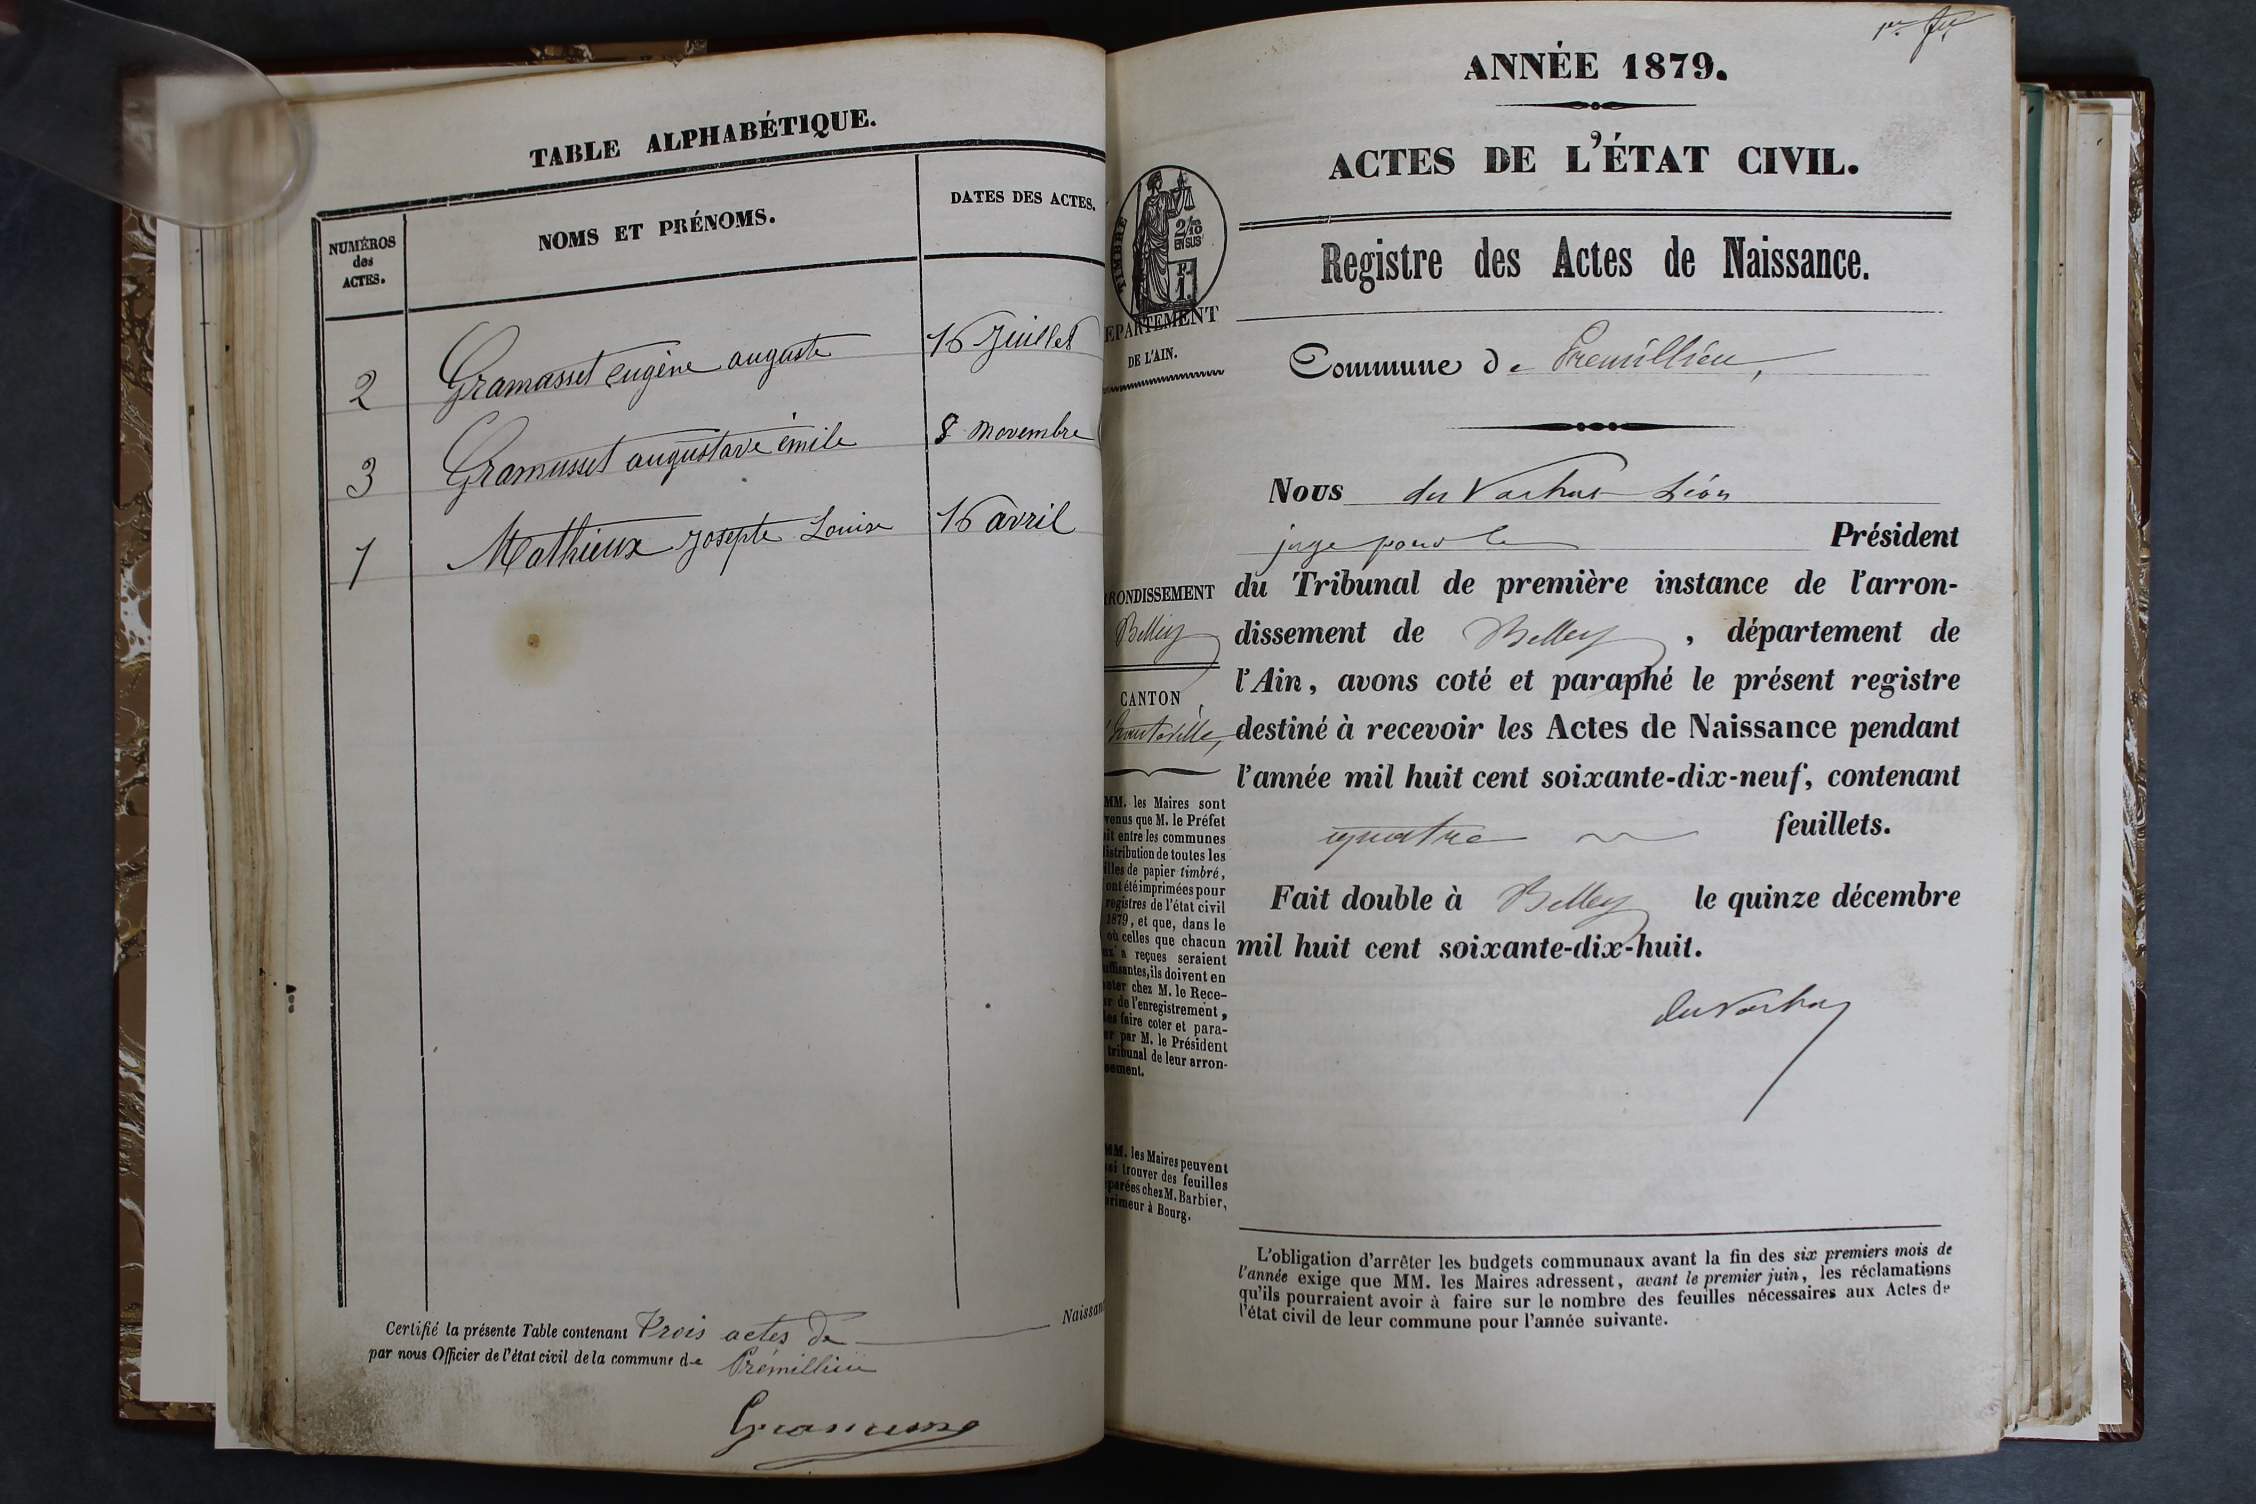 TABLE ALPHABÉTIQUE.
NUMÉROS
des
ACTES.
NOMS ET PRÉNOMS.
DATES DES ACTES.
2 Gramasset eugène auguste 16 Juillet
3 Gramusset augustave émile 8 novembre
1 Mathieux Josepte Louise 16 avril
Certifié la présente Table contenant Trois actes de Naissan
par nous Officier de l'état civil de la commune de Prémillieu
1er
ANNÉE 1879.
ACTES DE L'ÉTAT CIVIL.
TIMBRE
2/10
EN SUS
P.
1.
EPARTEMENT
DE L'AIN.
Registre des Actes de Naissance.
Commune de Premillieu,
Nous Léon
juge pour le Président
du Tribunal de première instance de l'arron-
dissement de Belley, département de
l'Ain, avons coté et paraphé le présent registre
destiné à recevoir les Actes de Naissance pendant
l'année mil huit cent soixante-dix-neuf, contenant
quatre feuillets.
Fait double à Belley le quinze décembre
mil huit cent soixante-dix-huit.
RONDISSEMENT
Belley
CANTON
hauteville,
MM. les Maires sont
venus que M. le Préfet
it entre les communes
istribution de toutes les
illes de papier timbré,
ont été imprimées pour
registres de l'état civil
1879, et que, dans le
où celles que chacun
ux a reçues seraient
uffisantes, ils doivent en
eter chez M. le Rece-
r de l'enregistrement,
les faire coter et para-
er par M. le Président
tribunal de leur arron-
sement.
MM. les Maires peuvent
si trouver des feuilles
parées chez M. Barbier,
primeur à Bourg.
L'obligation d'arrêter les budgets communaux avant la fin des six premiers mois de
l'année exige que MM. les Maires adressent, avant le premier juin, les réclamations
qu'ils pourraient avoir à faire sur le nombre des feuilles nécessaires aux Actes de
l'état civil de leur commune pour l'année suivante.